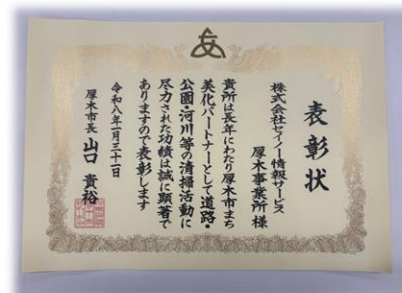 表彰状
株式会社セイノー情報サービス
厚木事業所様
貴所は長年にわたり厚木市まち
美化パートナーとして道路・
公園・河川等の清掃活動に
尽力された功績は誠に顕著で
ありますので表彰します
令和八年一月三十一日
厚木市長 山口貴裕